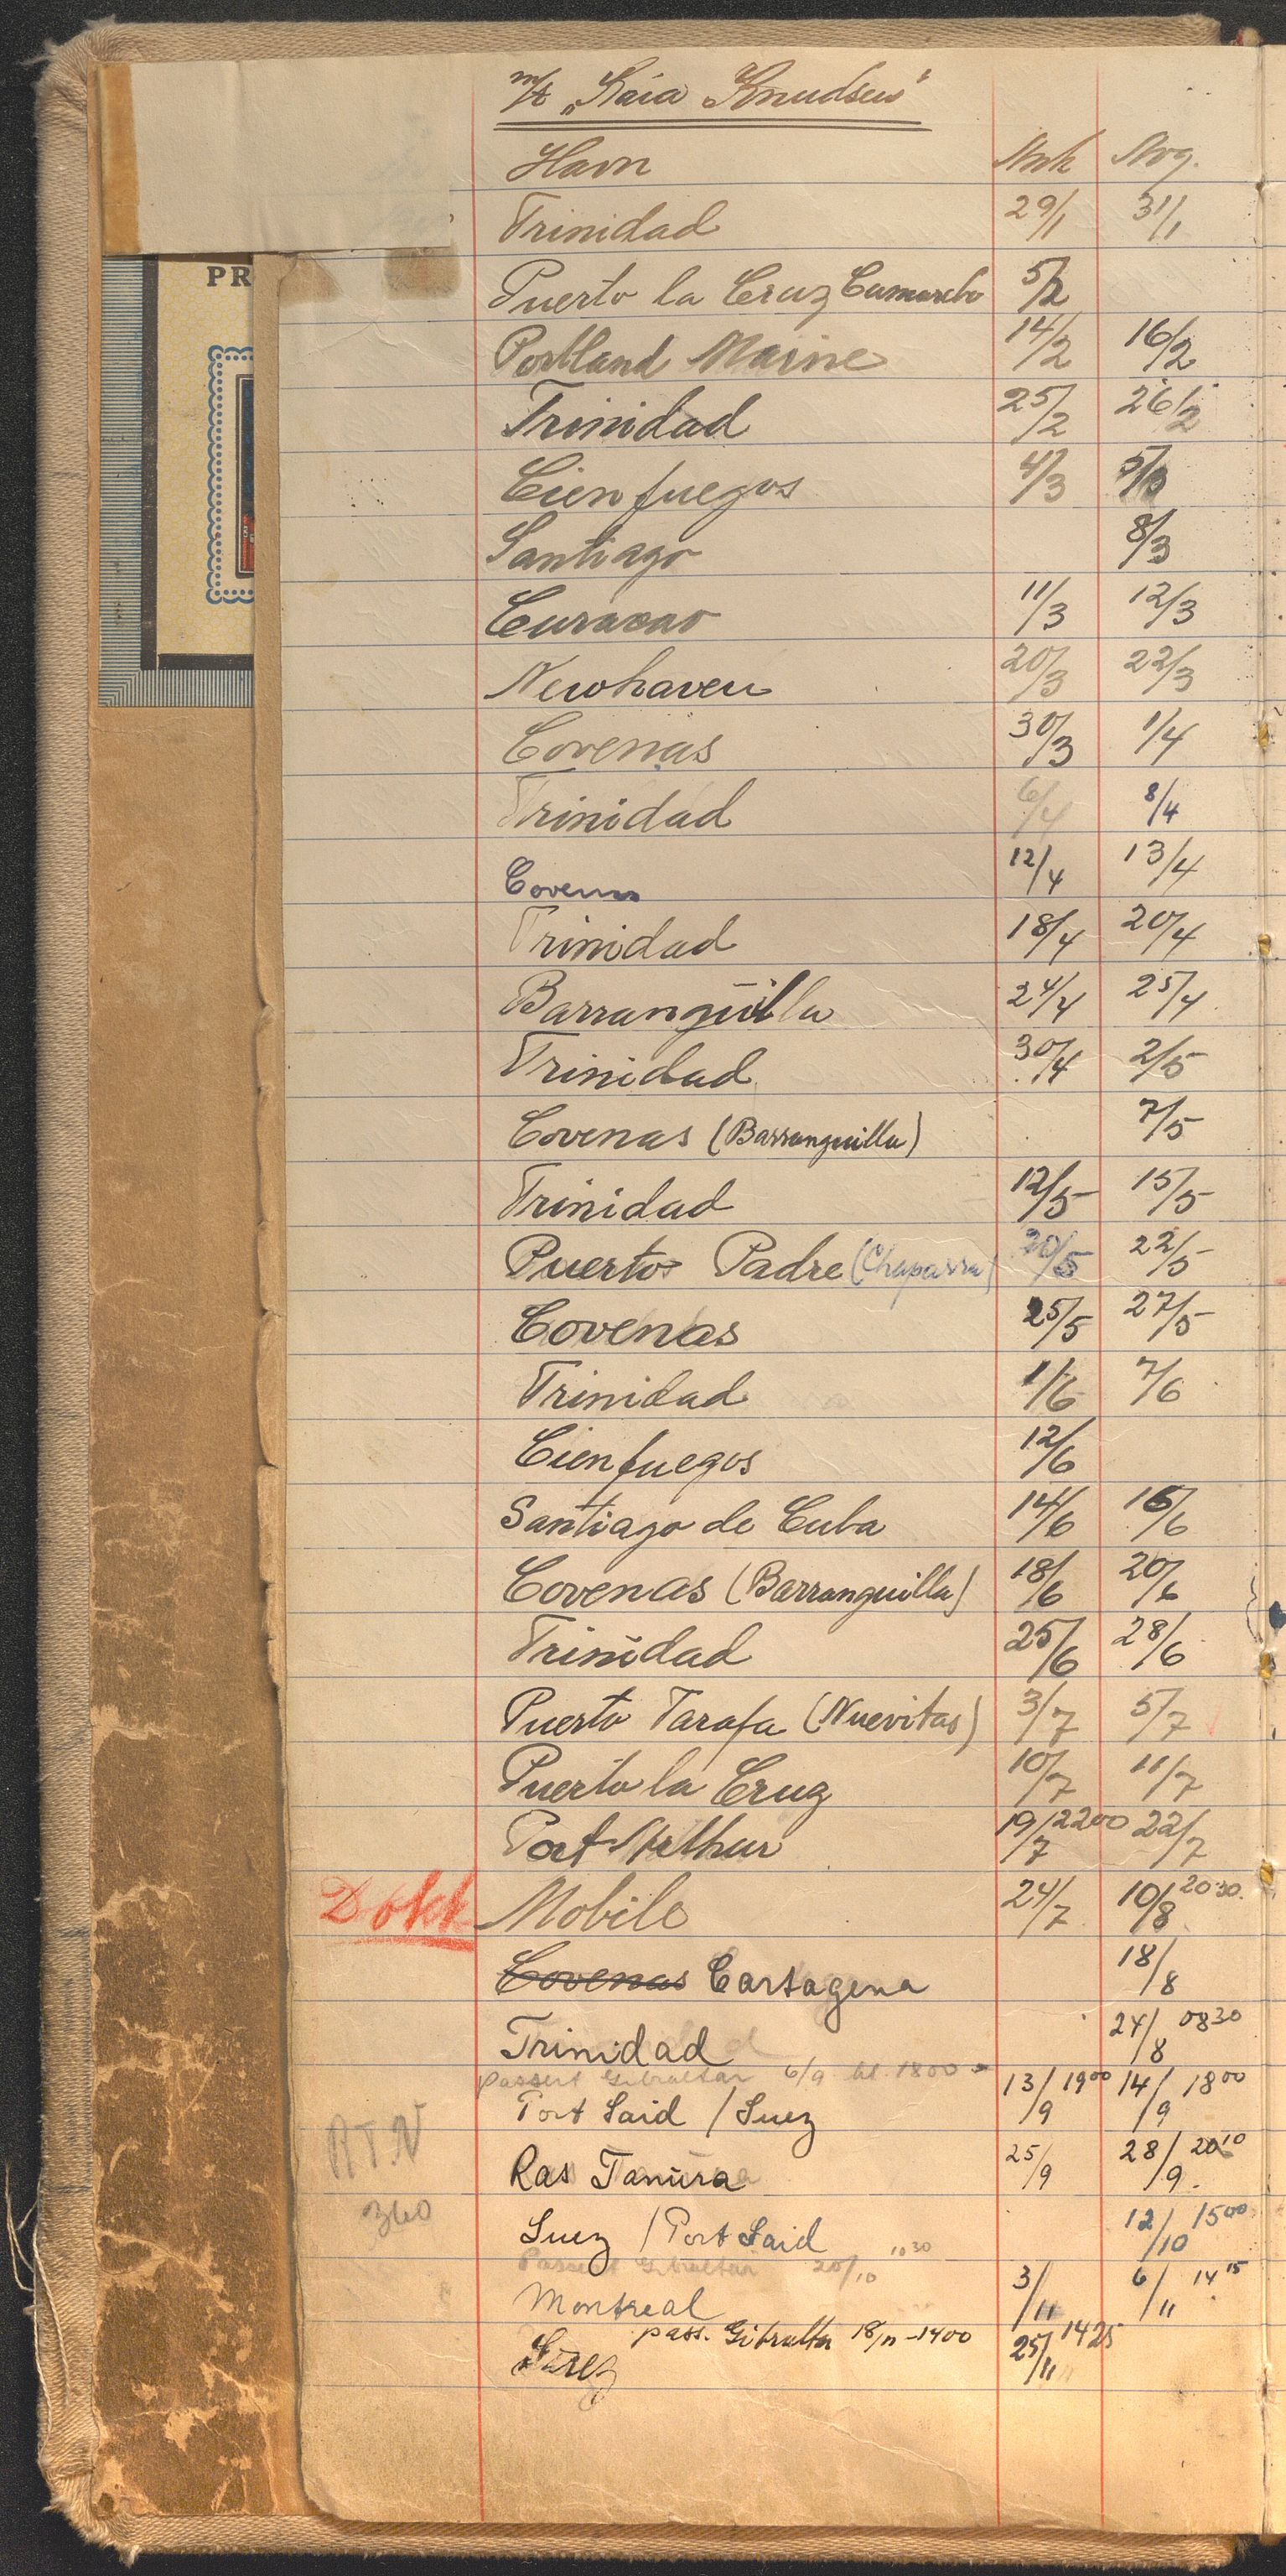 m/t "Kaia Knudsen"
Havn Ank Avg.
Trinidad 29/1 31/1
Puerto la Cruz 5/2
Portland Maine 14/2 16/2
Trinidad 25/2 26/2
Cienfuegos 4/3 5/3
Santiago 8/3
Curacao 11/3 12/3
Newhaven 20/3 22/3
Covenas 30/3 1/4
Trinidad 6/4 8/4
Covenas 12/4 13/4
Trinidad 18/4 20/4
Barranquilla 24/4 25/4
Trinidad 30/4 2/5
Covenas (Barranquilla) 7/5
Trinidad 12/5 15/5
Puerto Padre (Chaparra) 20/5 22/5
Covenas 25/5 27/5
Trinidad 1/6 7/6
Cienfuegos 12/6
Santiago de Cuba 14/6 16/6
Covenas (Barranquilla) 18/6 20/6
Trinidad 25/6 28/6
Puerto Tarafa (Nuevitas) 3/7 5/7
Puerto la Cruz 10/7 11/7
Port Arthur 19/7 2200 22/7
Dokk Mobile 24/7 10/8 2030
Covenas Cartagena 18/8
Trinidad 24/8 0830
passert Gibraltar 6/9 kl. 1800
Port Said / Suez 13/9 1900 14/9 1800
RTN
Ras Tanura 25/9 28/9 2010
360
Suez / Port Said 12/10 1500
Passert Gibraltar 20/10 1030
Montreal 3/11 6/11 1415
pass. Gibralta 18/11 - 1400
Suez 25/11 1425
PR